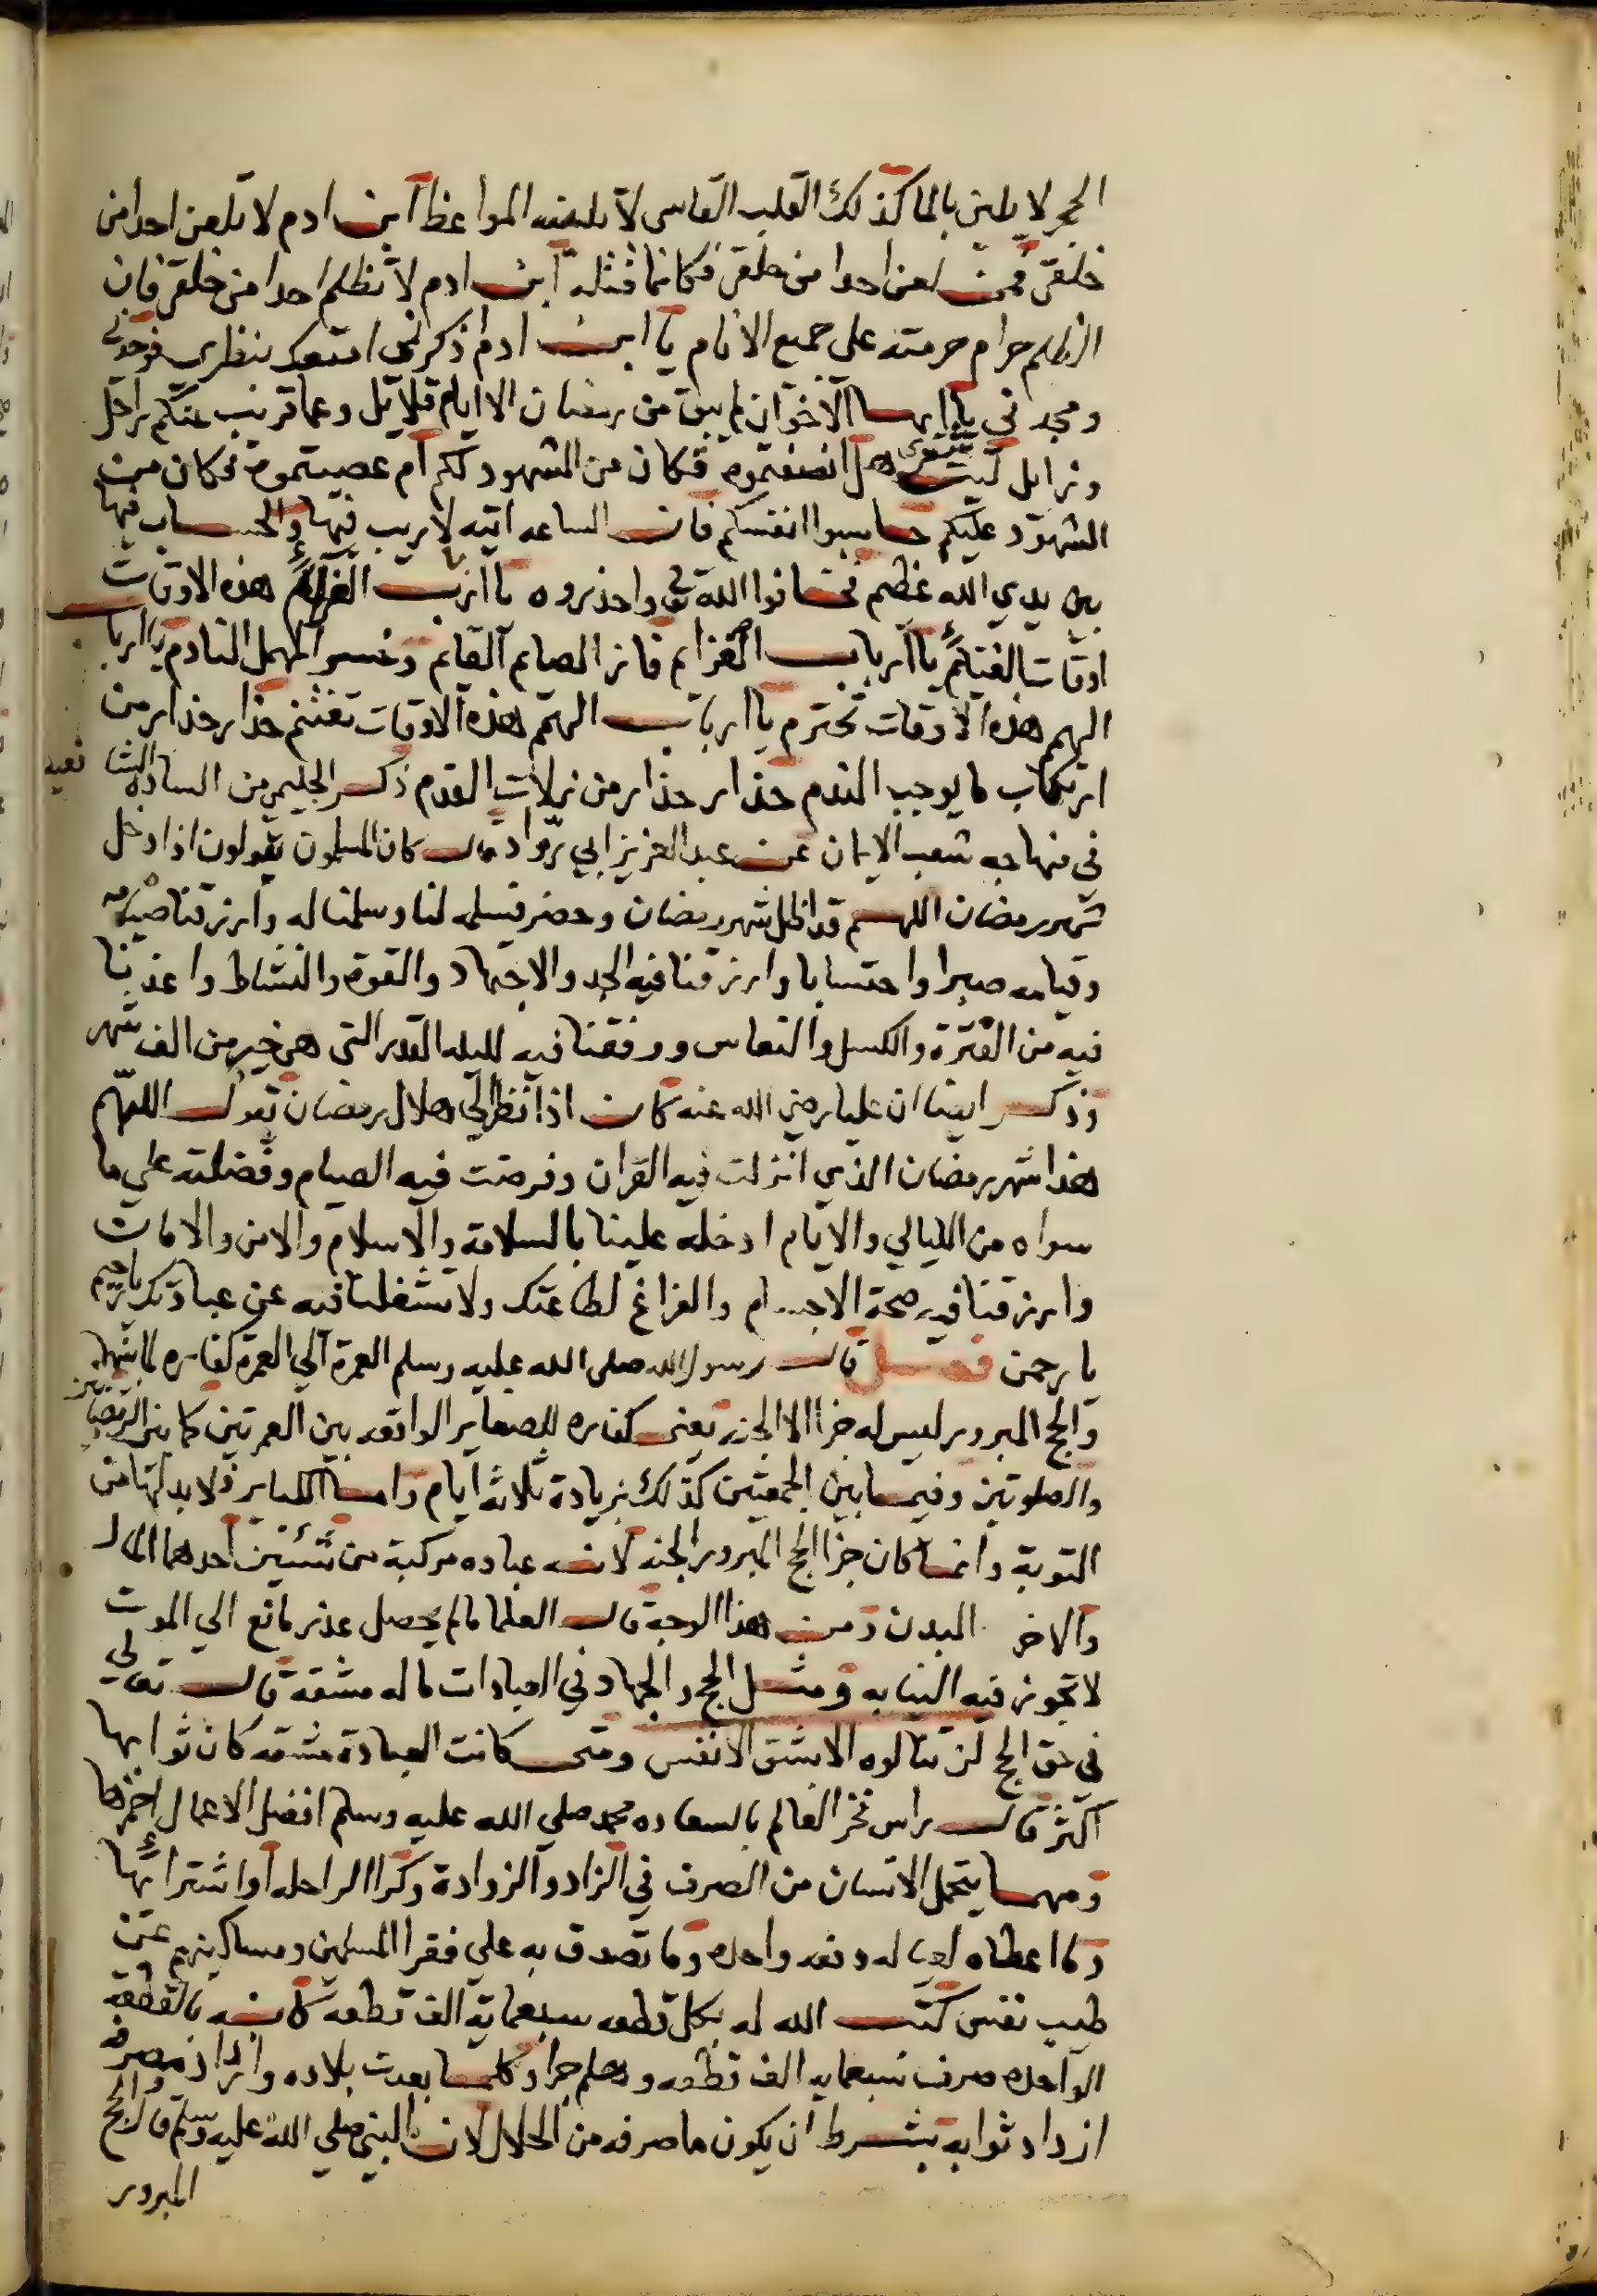 الحجر لا يلين بالما كذلك القلب القاسى لا تلينه المواعظ ابن ادم لا تلعن احدا من
خلقى فمن لعن احدا من خلقى فكانما قتله ابن ادم لا تظلم احدا من خلقى فان
الظلم حرام حرمته على جميع الانام يا ابن ادم اذكرنى بنظرى
ومجدنى يا ايها الاخوان لم يبق من رمضان الا ايام قلائل وعما قريب عنكم راحل
وزايل ليت شعرى هل انصفتموه فكان من الشهود لكم ام عصيتموه فكان من
الشهود عليكم حاسبوا انفسكم فان الساعه اتيه لا ريب فيها والحساب فيها
بين يدي الله عظيم فخافوا الله تعالى واحذروه يا ارباب العزائم هذه الاوقات
اوقات الغنائم يا ارباب العزايم فاز الصايم القايم وخسر المهمل النادم يا ارباب
الهمم هذه الاوقات تحترم يا ارباب الهمم هذه الاوقات تغتنم حذار حذار من
ارتكاب ما يوجب الندم حذار حذار من زلات القدم ذكر الحليمي من الساده الشافعيه
في منهاجه شعب الايمان عن عبد العزيز ابي رواد قال كان المسلمون يقولون اذا دخل
شهر رمضان اللهم قد اظل شهر رمضان وحضر فسلمه لنا وسلمنا له وارزقنا صيامه
وقيامه صبرا واحتسابا وارزقنا فيه الجد والاجتهاد والقوة والنشاط واعذنا
فيه من الفترة والكسل والنعاس ووفقنا فيه لليله القدر التى هى خير من الف شهر
وذكر ايضا ان عليا رضي الله عنه كان اذا نظر الي هلال رمضان يقول اللهم
هذا شهر رمضان الذي انزلت فيه القران وفرضت فيه الصيام وفضلته علي ما
سواه من الليالي والايام ادخله علينا بالسلامة والاسلام والامن والامان
وارزقنا فيه صحة الاجسام والفراغ لطاعتك ولا تشغلنا فيه عن عبادتك يا رحيم
يا رحمن فصل قال رسول الله صلى الله عليه وسلم العمرة الي العمرة كفاره لما بينهما
والحج المبرور ليس له جزا الا الجنه يعنى كفاره للصغاير الواقعه بين العمرتين كما بين الرمضانين
والصلوتين وفيما بين الجمعتين كذلك بزيادة ثلاثة ايام واما الكباير فلا بد لها من
التوبة وانما كان جزا الحج المبرور الجنه لانه عباده مركبة من شيئين احدهما المال
والاخر البدن ومن هذا الوجه قال العلما ما لم يحصل عذر مانع الي الموت
لا تجوز فيه النيابه ومثل الحج والجهاد في العبادات ما له مشقة قال تعالي
في حق الحج لن تنالوه الا بشق الانفس ومتى كانت العبادة مشقه كان ثوابها
اكثر قال راس فخر العالم بالسعاده محمد صلي الله عليه وسلم افضل الاعمال احمزها
ومهما يتحمل الانسان من الصرف في الزاد والزوادة وكرا الراحله او اشترائها
وما اعطاه لعياله ونفقه واحده وما تصدق به علي فقرا المسلمين ومساكينهم عن
طيب نفس كتب الله له بكل قطعه سبعماية الف قطعه كانه بالقطعه
الواحده صرف سبعمايه الف قطعه وهلم جرا وكلما بعدت بلاده وازداد مصرفه
ازداد ثوابه بشرط ان يكون ما صرفه من الحلال لان النبي صلي الله عليه وسلم قال والحج
المبرور